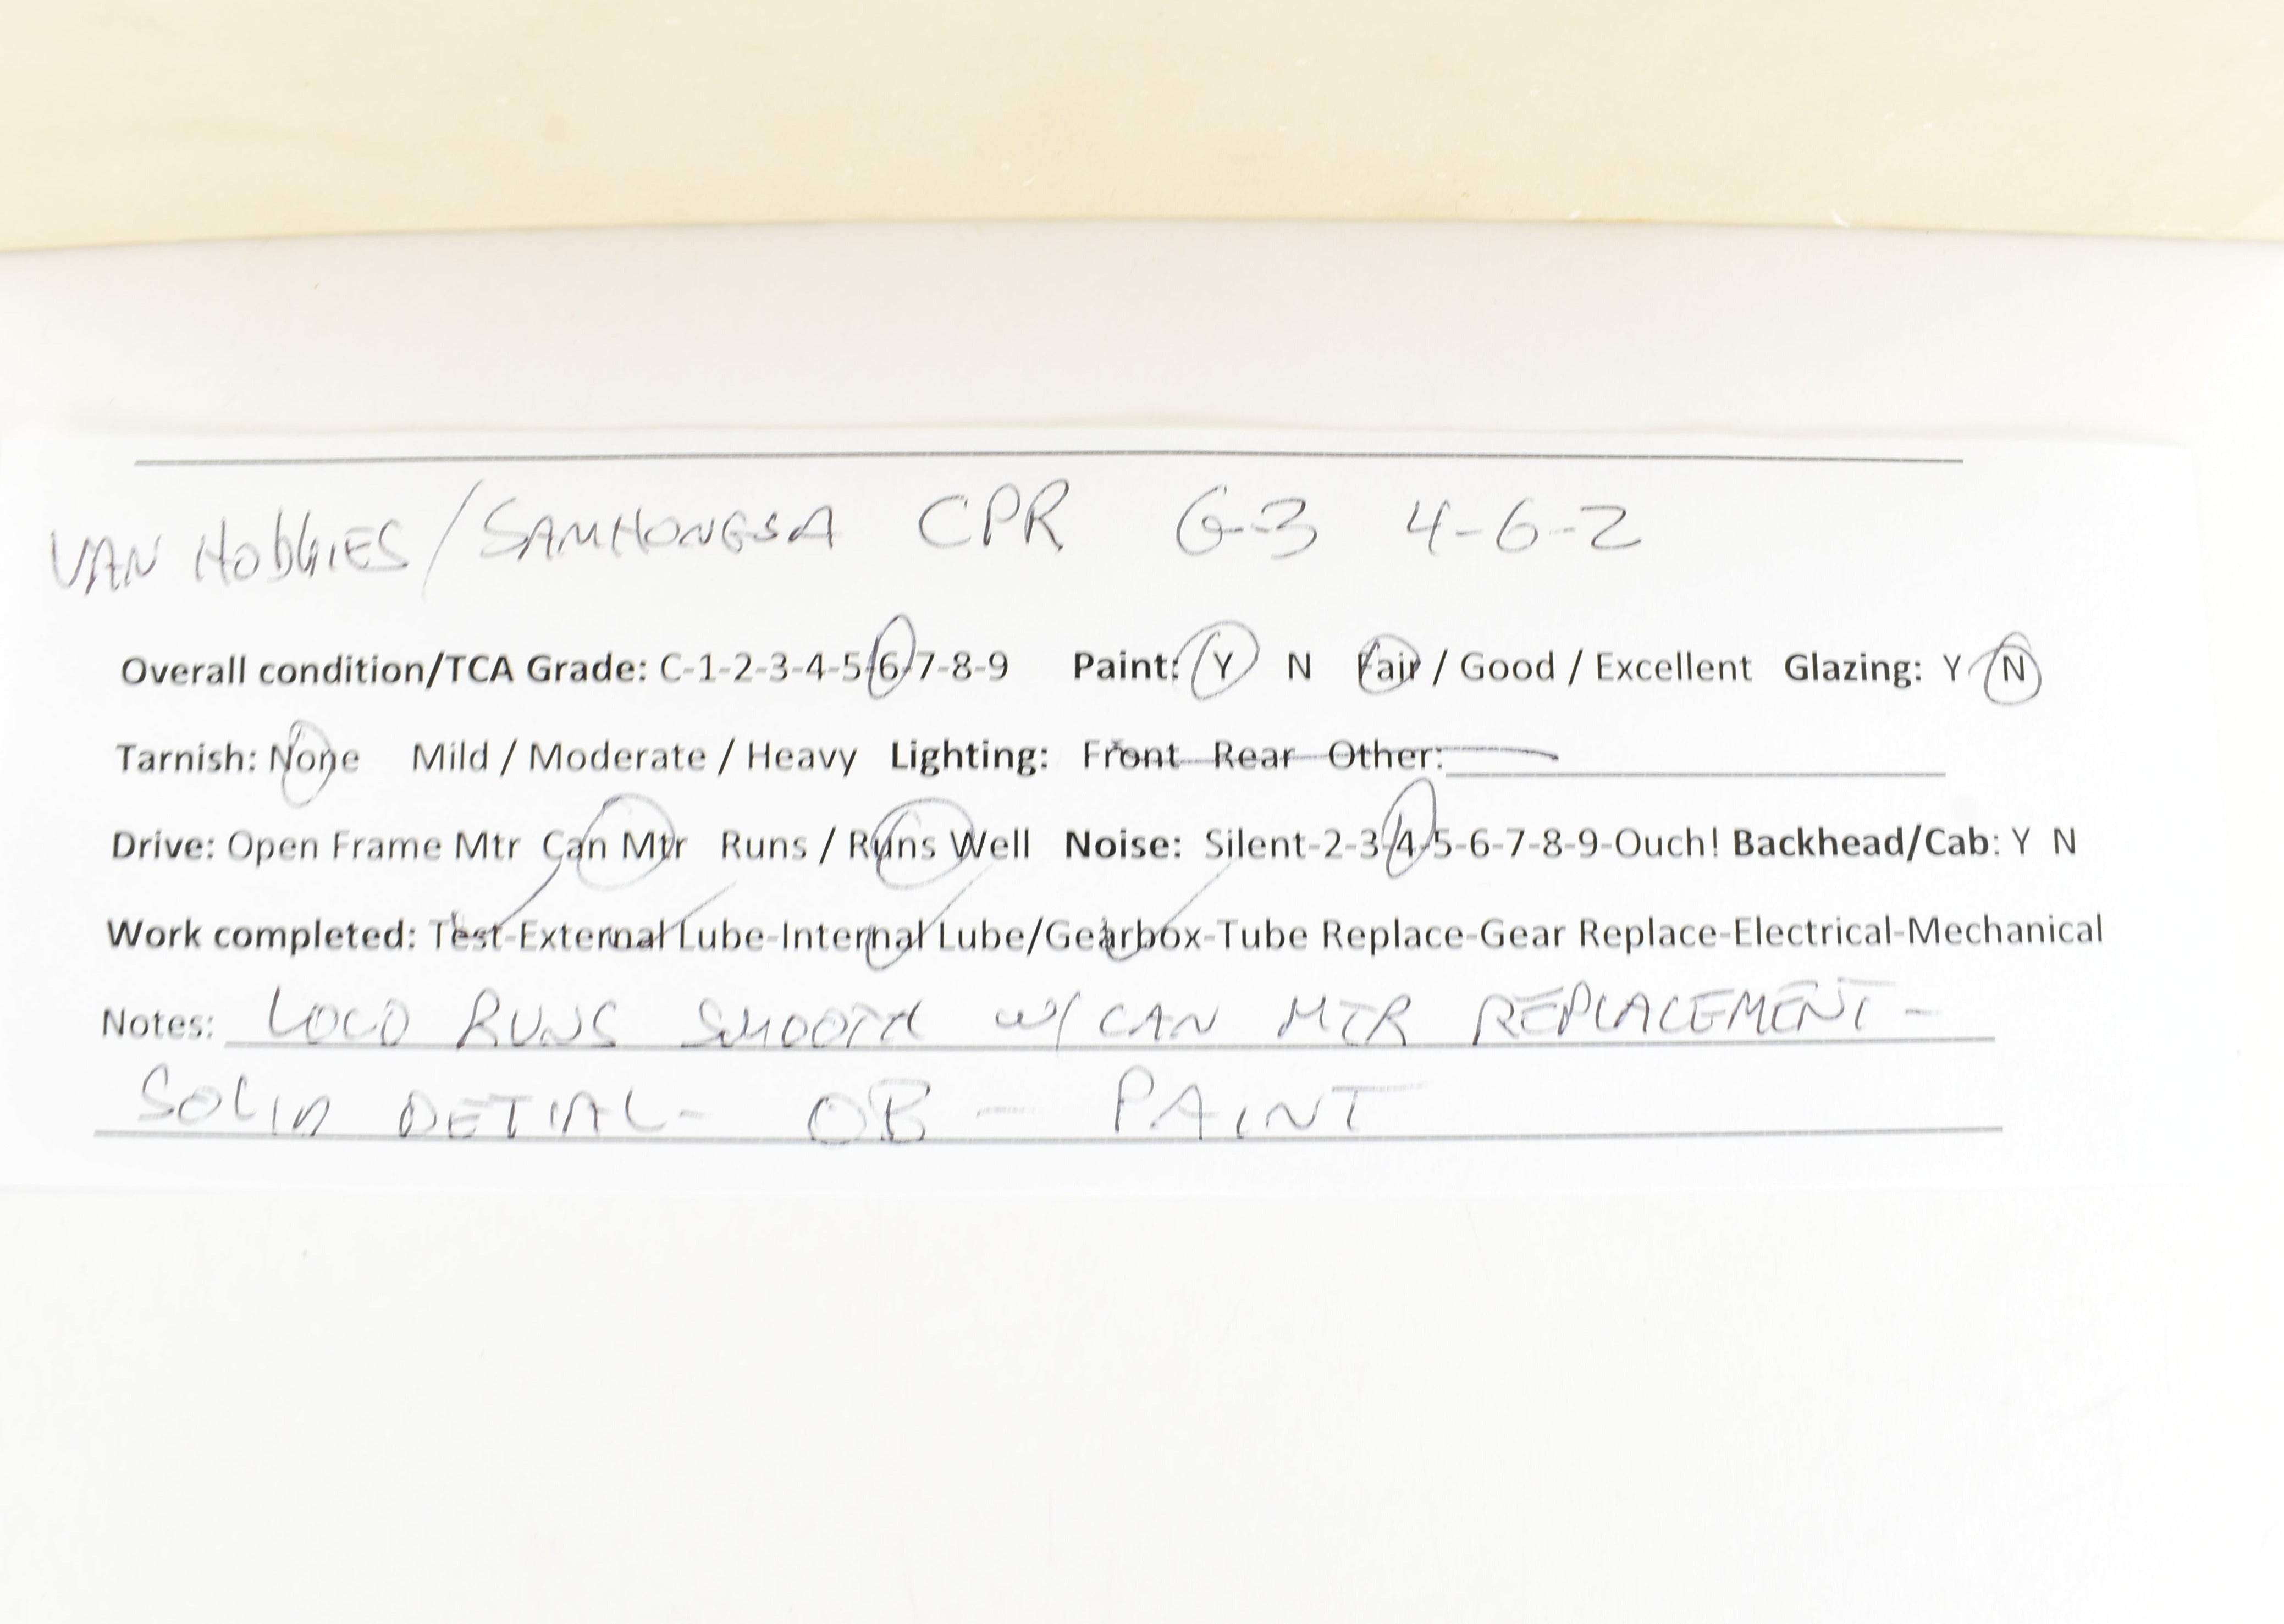 VAN HobbIES/SAMHONGSA CPR G-3 4-6-2
Overall condition/TCA Grade: C-1-2-3-4-5-6-7-8-9 Paint: Y N Fair / Good / Excellent Glazing: Y N
Tarnish: None Mild / Moderate / Heavy Lighting: Front Rear Other:
Drive: Open Frame Mtr Can Mtr Runs / Runs Well Noise: Silent-2-3-4-5-6-7-8-9-Ouch! Backhead/Cab: Y N
Work completed: Test-External Lube-Internal Lube/Gearbox-Tube Replace-Gear Replace-Electrical-Mechanical
Notes: LOCO RUNS SMOOTH W/ CAN MTR REPLACEMENT -
SOLID DETIAL - OB - PAINT